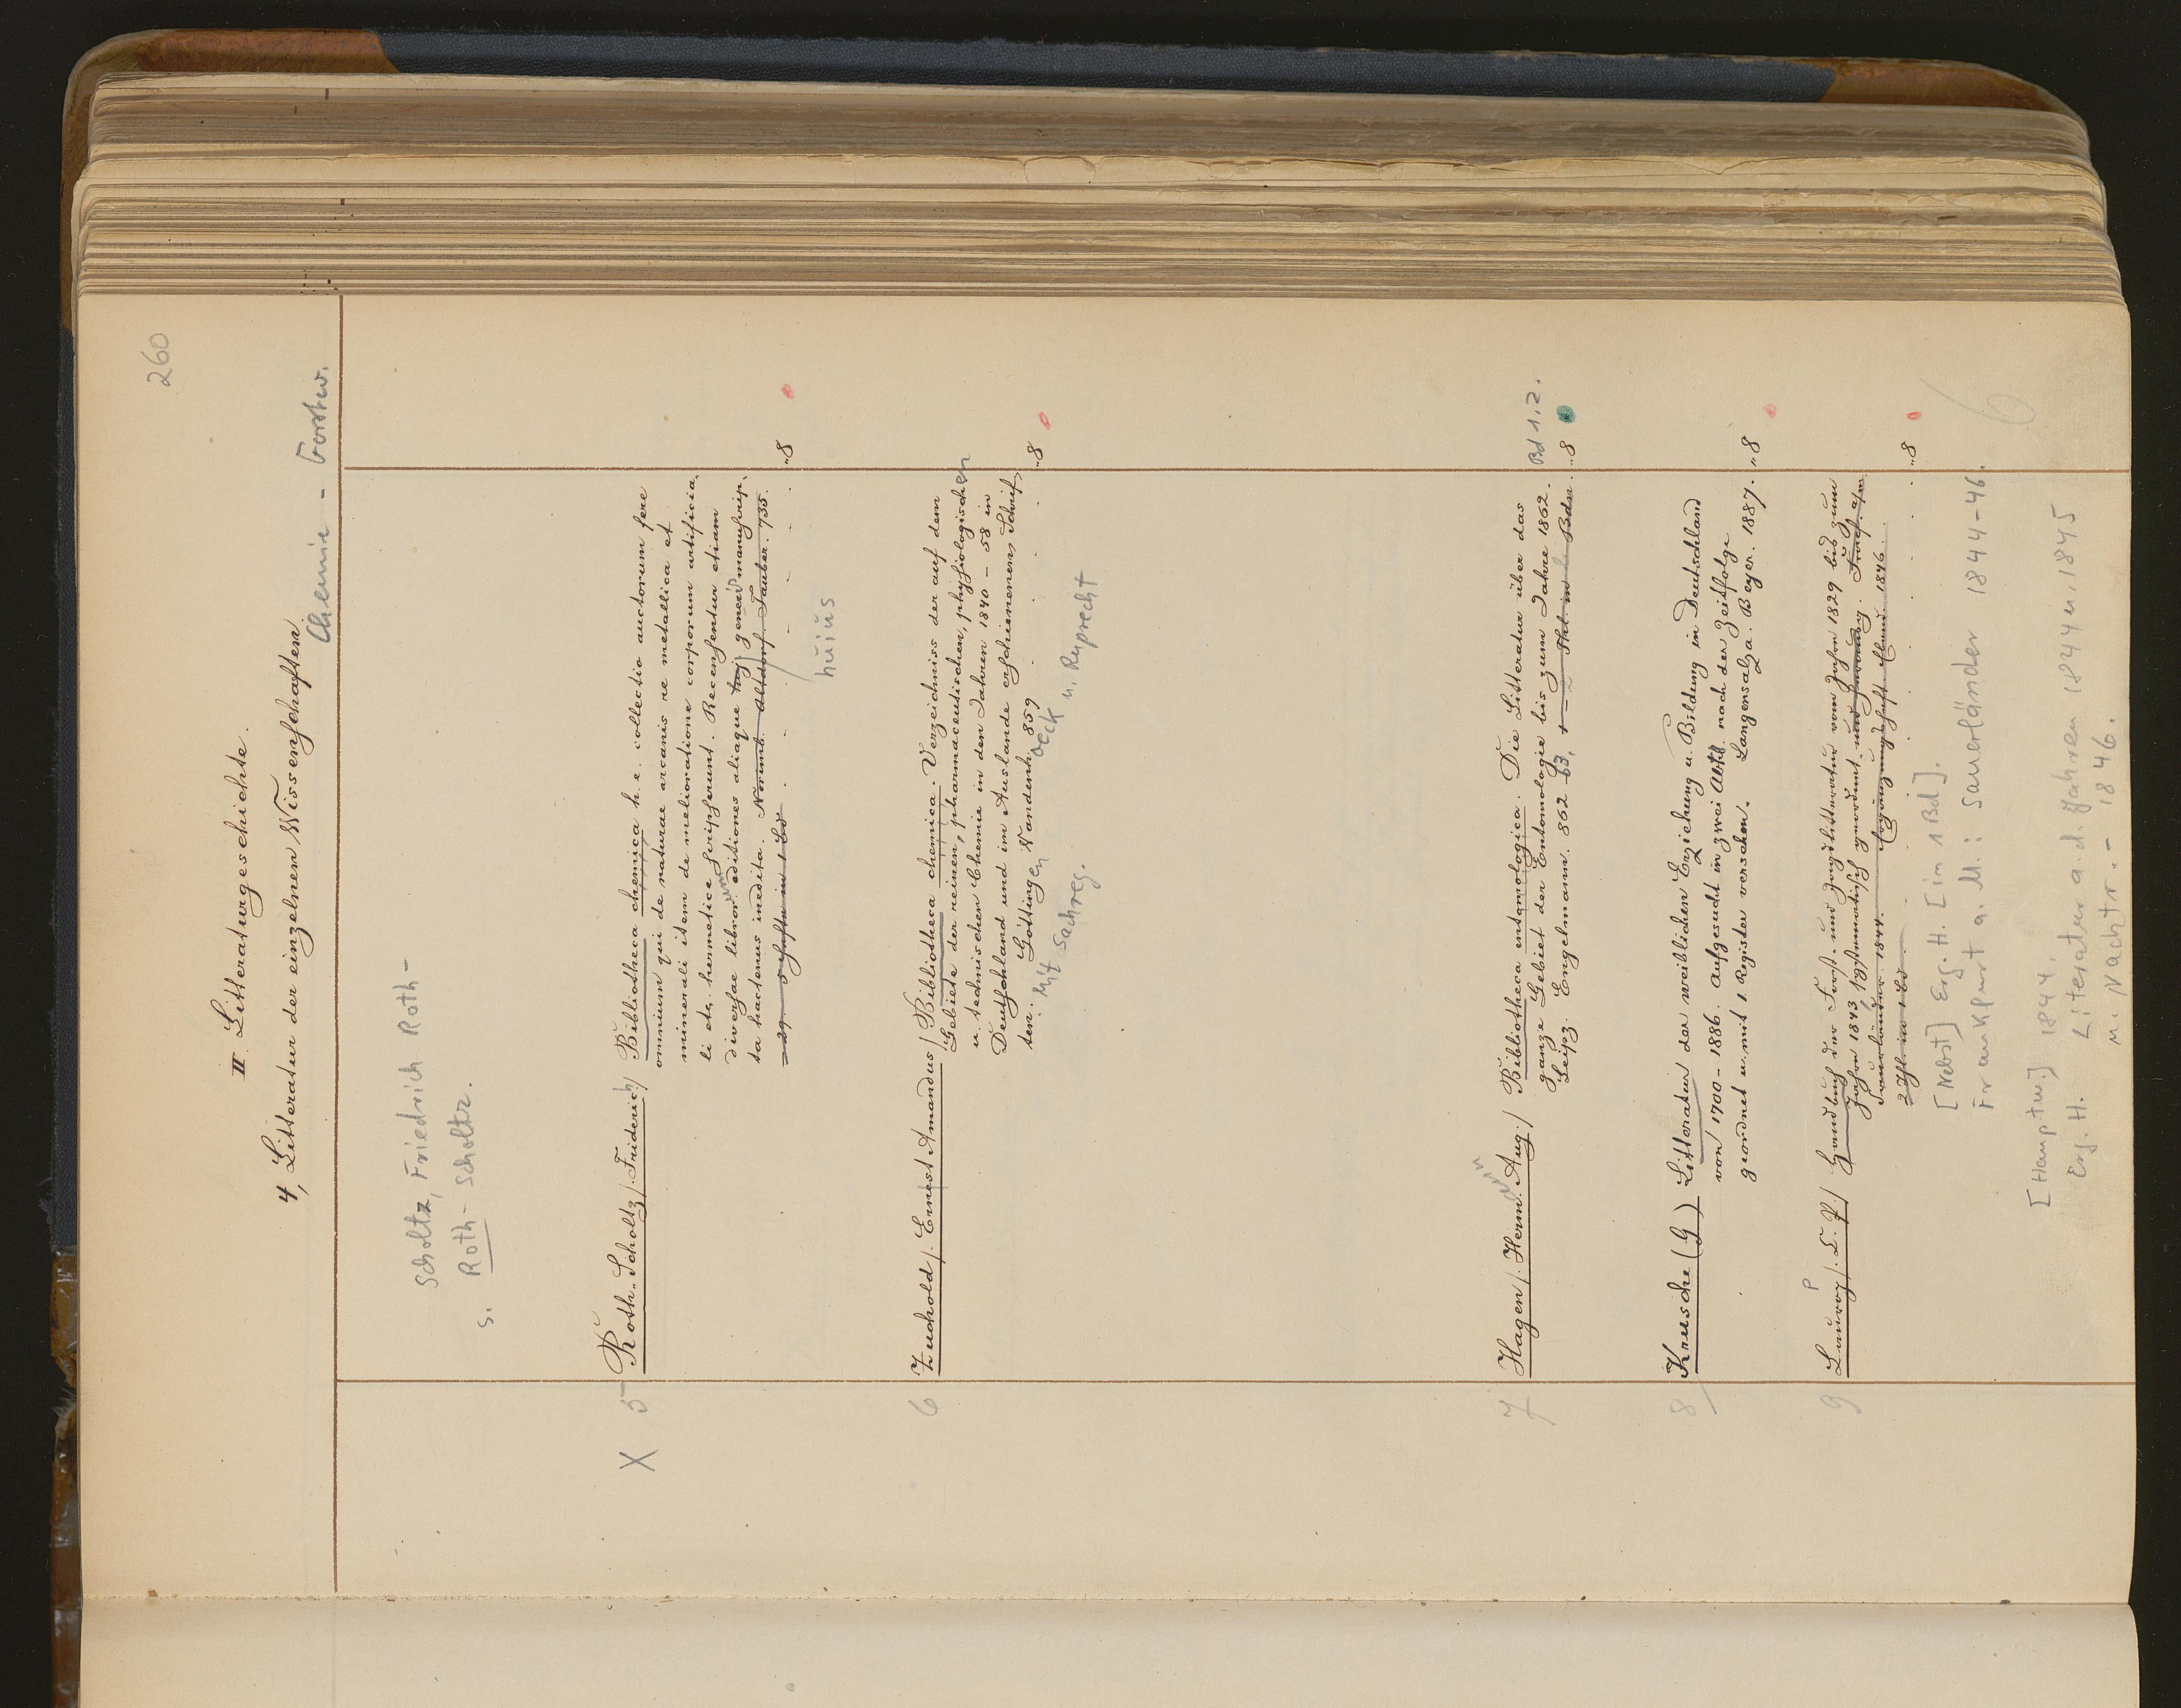 260
II. Litteraturgeschichte.
4, Litteratur der einzelnen Wissenschaften.
Chemie - Forstw.
Scholtz, Friedrich Roth-
s. Roth-Scholtz.
X 5 Roth-Scholtz /. Friderich / Bibliotheca chemica h. e. collectio auctorum fere
omnium qui de naturae arcanis re metallica et
minerali item de melioratione corporum artificia
li etc. hermetice scripserunt. Recensentur etiam
diversae librorum editiones aliaque huj generis manuscrip-
ta hactenus inedita. Norimb. Altdorf. Tauber. 735.
29. 5 Hefte in 1 Bd . . . . „8
huius
6 Zuchold /. Ernest Amandus / Bibliotheca chemica. Verzeichniss der auf dem
Gebiete der reinen, pharmaceutischen, physiologischen
u. technischen Chemie in den Jahren 1840 - 58 in
Deutschland und im Auslande erschienenen Schrif
ten. Göttingen Vandenh. 859 . . . „8
oeck u. Ruprecht
Mit Sachreg.
7 Hagen /. Herm. Aug. / Bibliotheca entomologica. Die Litteratur über das
ann
ganze Gebiet der Entomologie bis zum Jahre 1862. Bd 1.2.
Leipz. Engelmann. 862 63, Thl. in Bdn. „8
8 Krusche (G) Litteratur der weiblichen Erziehung u. Bildung in Deutschland
von 1700 - 1886. Aufgesucht in zwei Abth. nach der Zeitfolge
geordnet u. mit 1 Register versehen. Langensalza. Beyer. 1887. „8
9 Laurop /. C. P. / Handbuch der Forst- und Jagdlitteratur vom Jahre 1829 bis zum
P
Jahre 1843 systematisch geordnet und
Sauerländer 1844. Ergänzungsheft Ebend. 1846.
2 Thl. in 1 Bd . . . „8
[Nebst] Erg. H. [in 1 Bd].
Frankfurt a. M.: Sauerländer 1844-46.
[Hauptw.] 1844.
Erg. H. Literatur a. d. Jahren 1844 u. 1845
m. Nachtr. - 1846.
6